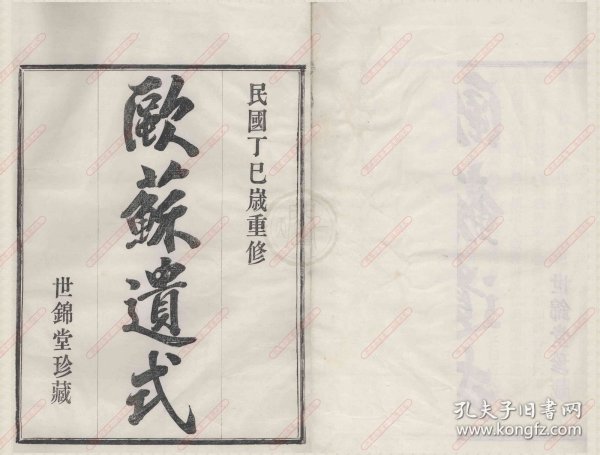 民國丁巳歲重修
歐蘇遺式
世錦堂珍藏
孔夫子旧书网
www.kongfz.com